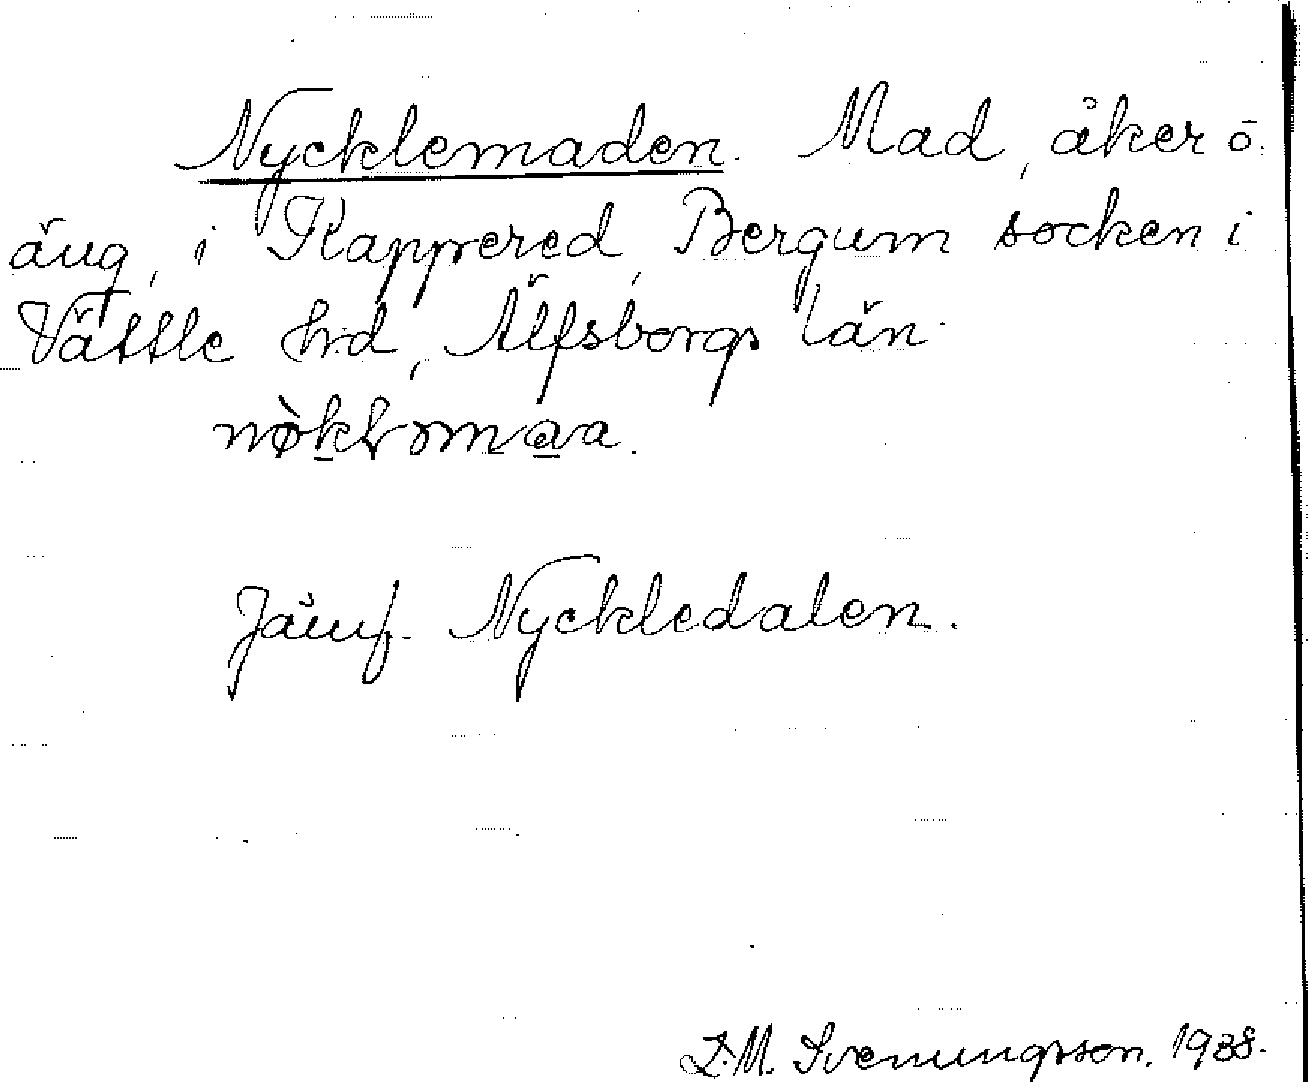 Nycklemaden. Mad, åker ō.
äng, i Kappered, Bergum socken i
Vättle hrd, Älfsborgs län.
Jämf. Nyckledalen.
L.M. Svenungsson. 1938.